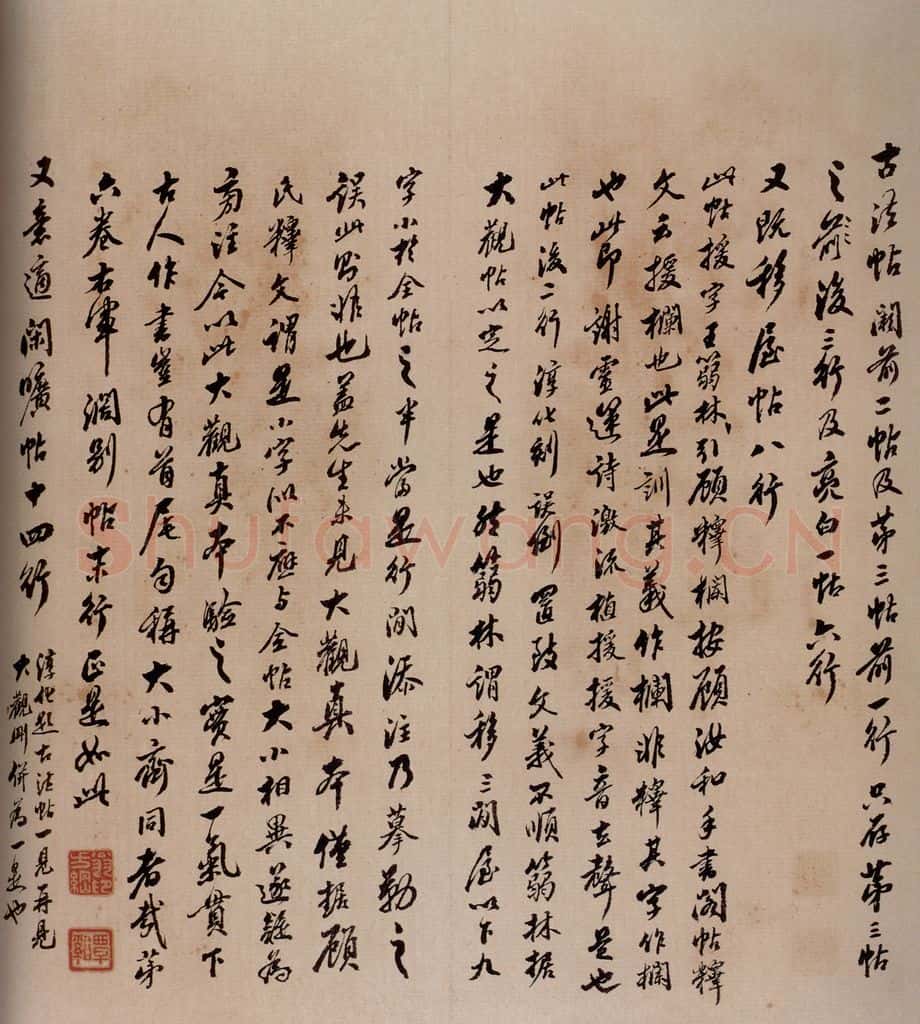 古法帖闕前二帖及第三帖前一行只存第三帖
之前後三行及亮白一帖六行
又既移屋帖八行
此帖援字王篛林引顧釋欄按顧汝和手書閣帖釋
文云援欄也此是訓其義作欄非釋其字作欄
也此即謝靈運詩激流植援援字音去聲是也
此帖後二行淳化刻誤倒置致文義不順篛林據
大觀帖以定之是也然篛林謂移三閒屋以下九
字小於全帖之半當是行間添注乃摹勒之
誤此則非也蓋先生未見大觀真本僅据顧
氏釋文謂是小字似不應与全帖大小相異遂疑為
旁注今以此大觀真本驗之實是一氣貫下
古人作書豈有首尾勻稱大小齊同者哉第
六卷右軍濶别帖末行正是如此
又意適閑曠帖十四行
淳化題古法帖一見再見
大觀則併為一是也
翁方綱印
覃谿
Shufawang.CN